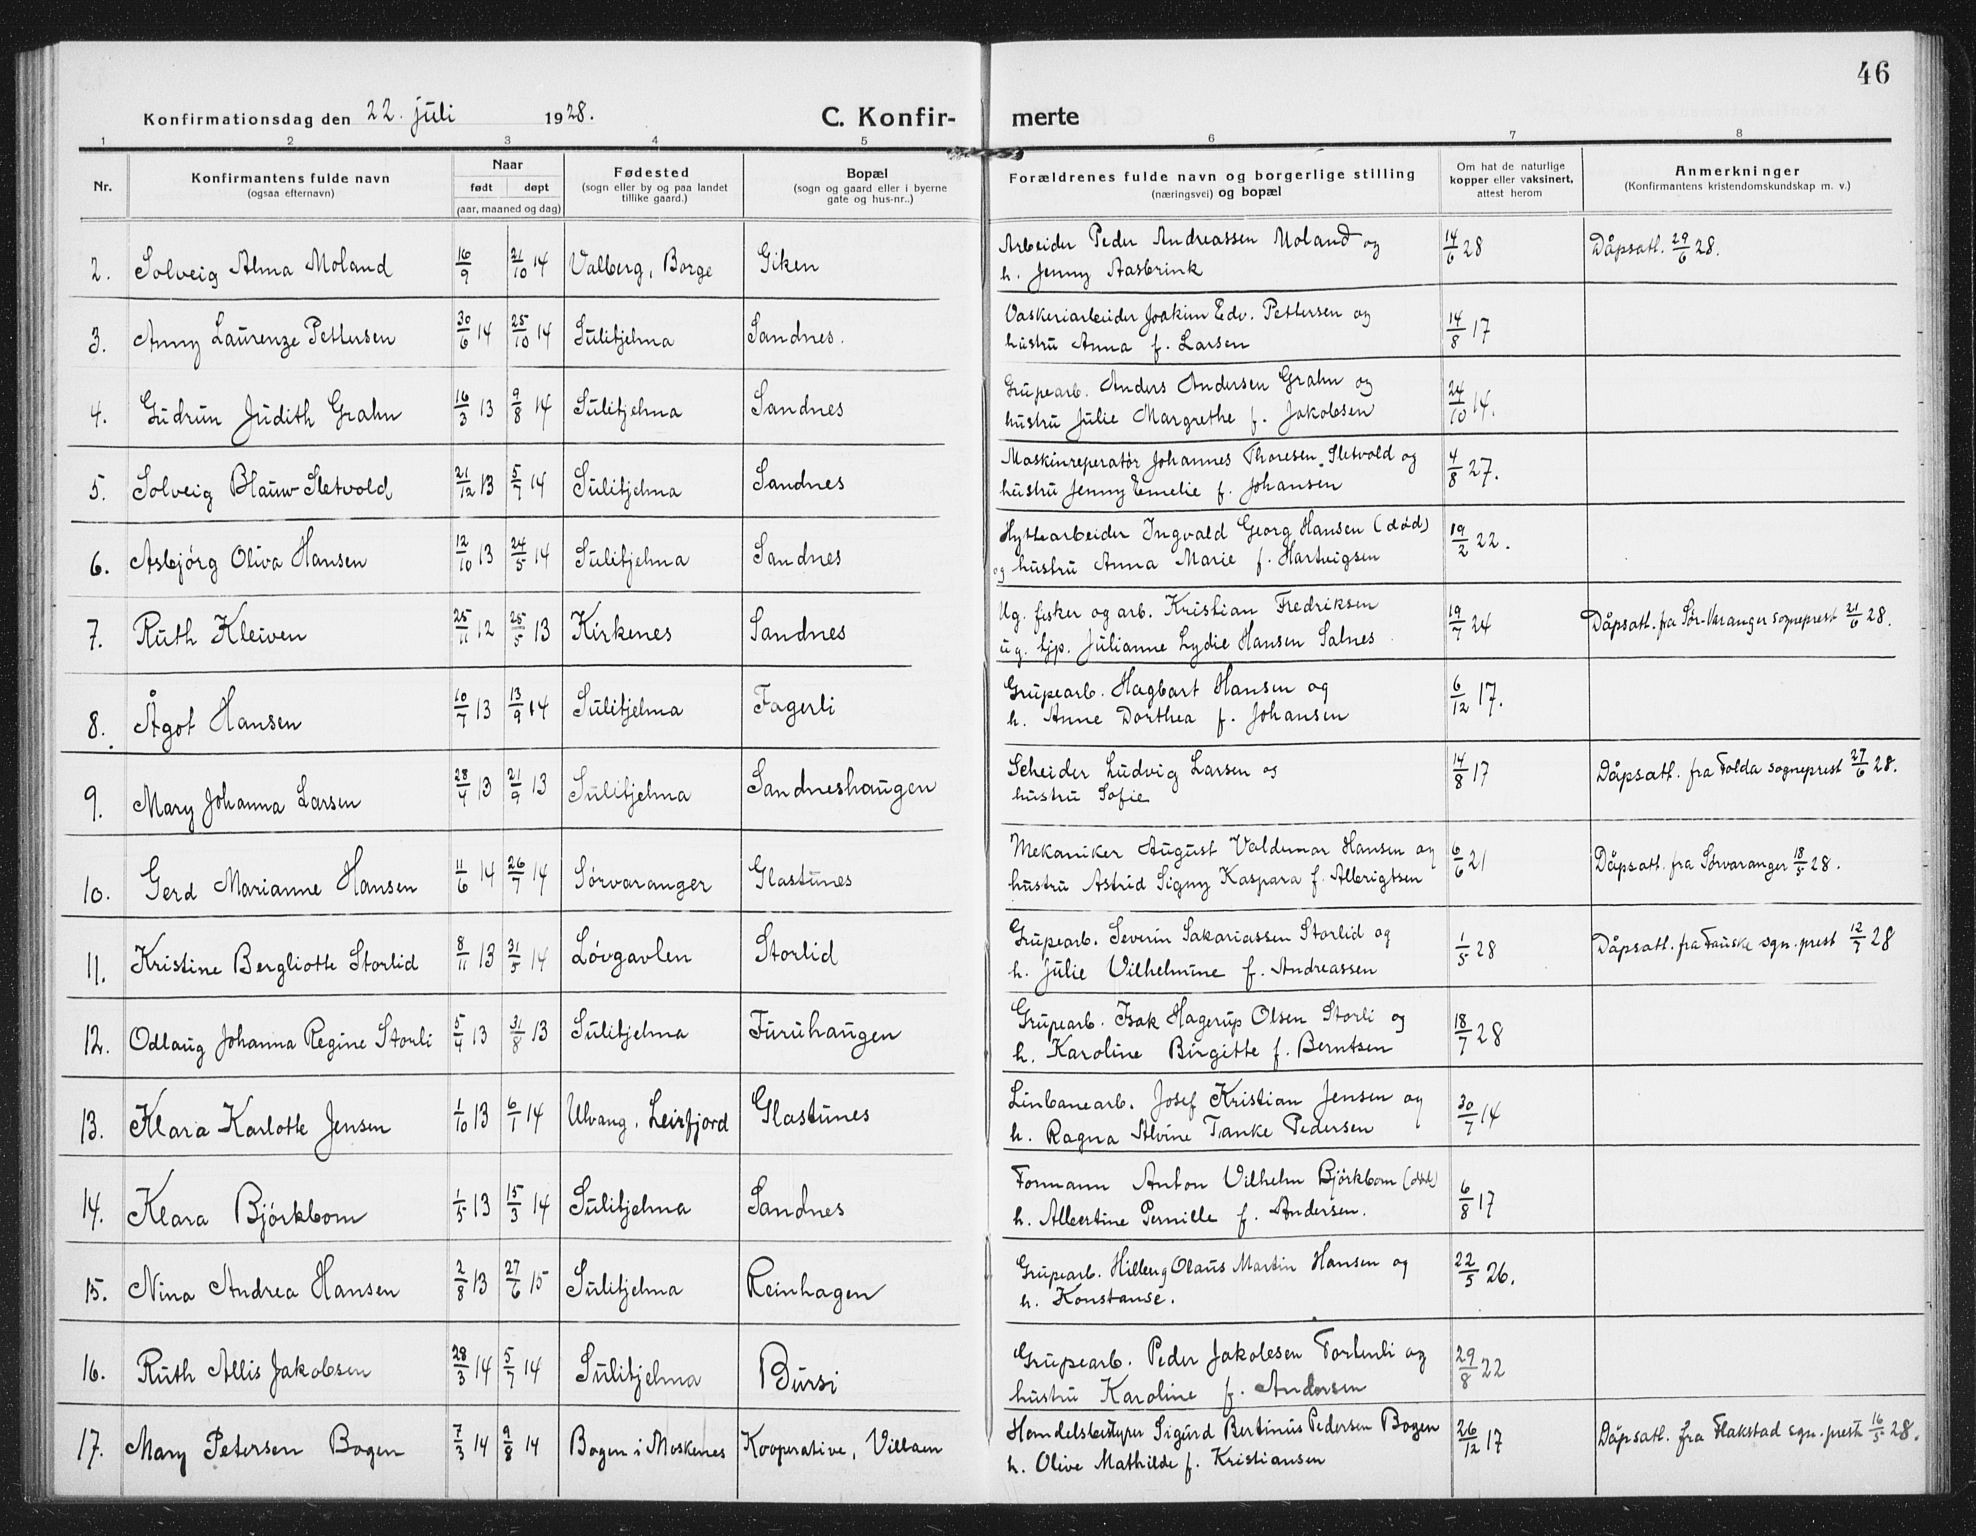 46
Konfirmationsdag den 22. juli 1928. C. Konfir- merte
1 2 3 4 5 6 7 8
Nr. Konfirmantens fulde navn (ogsaa efternavn) Naar født døpt (aar, maaned og dag) Fødested (sogn eller by og paa landet tillike gaard.) Bopæl (sogn og gaard eller i byerne gate og hus-nr..) Forældrenes fulde navn og borgerlige stilling (næringsvei) og bopæl Om hat de naturlige kopper eller vaksinert, attest herom Anmerkninger (Konfirmantens kristendomskundskap m. v.)
2. Solveig Alma Moland 16/9 21/10 14 Valberg, Borge Giken Arbeider Peder Andreassen Moland og 14/6 28 Dåpsatt. 29/6 28.
h. Jenny Aasbrink
3. Anny Laurenze Pettersen 30/6 14 25/10 14 Sulitjelma Sandnes. Vaskeriarbeider Joakim Edv. Pettersen og 14/8 17
hustru Anna f. Larsen
4. Gudrun Judith Grahn 16/3 13 9/8 14 Sulitjelma Sandnes Grupearb. Anders Andersen Grahn og 24/10 14.
hustru Julie Margrethe f. Jakobsen
5. Solveig Blauw Sletvold 21/12 13 5/7 14 Sulitjelma Sandnes Maskinreperatør Johannes Thoresen Sletvold og 4/8 27.
hustru Jenny Emelie f. Johansen
6. Asbjørg Oliva Hansen 12/10 13 24/5 14 Sulitjelma Sandnes Hyttearbeider Ingvald Georg Hansen (død) 19/2 22.
og hustru Anna Marie f. Hartvigsen
7. Ruth Kleiven 25/11 12 25/5 13 Kirkenes Sandnes Ug. fisker og arb. Kristian Fredriksen 19/7 24 Dåpsatt. fra Sør-Varanger sogneprest 21/6 28.
ug. tjp. Julianne Lydie Hansen Salnes
8. Ågot Hansen 10/7 13 13/9 14 Sulitjelma Fagerli Grupearb. Hagbart Hansen og 6/12 17.
h. Anne Dorthea f. Johansen
9. Mary Johanna Larsen 28/4 13 21/9 13 Sulitjelma Sandneshaugen Scheider Ludvig Larsen og 14/8 17 Dåpsatt. fra Folda sogneprest 27/6 28.
hustru Sofie
10. Gerd Marianne Hansen 11/6 14 26/7 14 Sørvaranger Glastunes Mekaniker August Valdemar Hansen og 6/6 21 Dåpsatt. fra Sørvaranger 18/5 28.
hustru Astrid Signy Kaspara f. Albrigtsen
11. Kristine Bergliotte Storlid 8/11 13 31/5 14 Løvgavlen Storlid Grupearb. Severin Sakariassen Storlid og 1/5 28 Dåpsatt. fra Fauske sgn. prest 12/7 28
h. Julie Vilhelmine f. Andreassen
12. Odlaug Johanna Regine Storli 5/4 13 31/8 13 Sulitjelma Furuhaugen Grupearb. Isak Hagerup Olsen Storli og 18/7 28
h. Karoline Birgitte f. Berntsen
13. Klara Karlotte Jensen 1/10 13 6/7 14 Ulvang, Leirfjord Glastunes Linbanearb. Josef Kristian Jensen og 30/7 14
h. Ragna Alvine Tanke Pedersen
14. Klara Bjørkbom 1/5 13 15/3 14 Sulitjelma Sandnes Formann Anton Vilhelm Bjørkbom (død) 6/8 17
h. Albertine Pernille f. Andersen.
15. Nina Andrea Hansen 2/8 13 27/6 15 Sulitjelma Reinhagen Grupearb. Hilberg Olaus Martin Hansen og 22/5 26.
h. Konstanse.
16. Ruth Allis Jakobsen 28/3 14 5/7 14 Sulitjelma Bursi Grupearb. Peder Jakobsen Fortunli og 29/8 22
hustru Karoline f. Andersen
17. Mary Petersen Bogen 7/3 14 9/8 14 Bogen i Moskenes Kooperative, Villaen Handelsbestyrer Sigurd Bertinus Pedersen Bogen 26/12 17 Dåpsatt. fra Flakstad sgn. prest 16/5 28.
h. Olive Mathilde f. Kristiansen